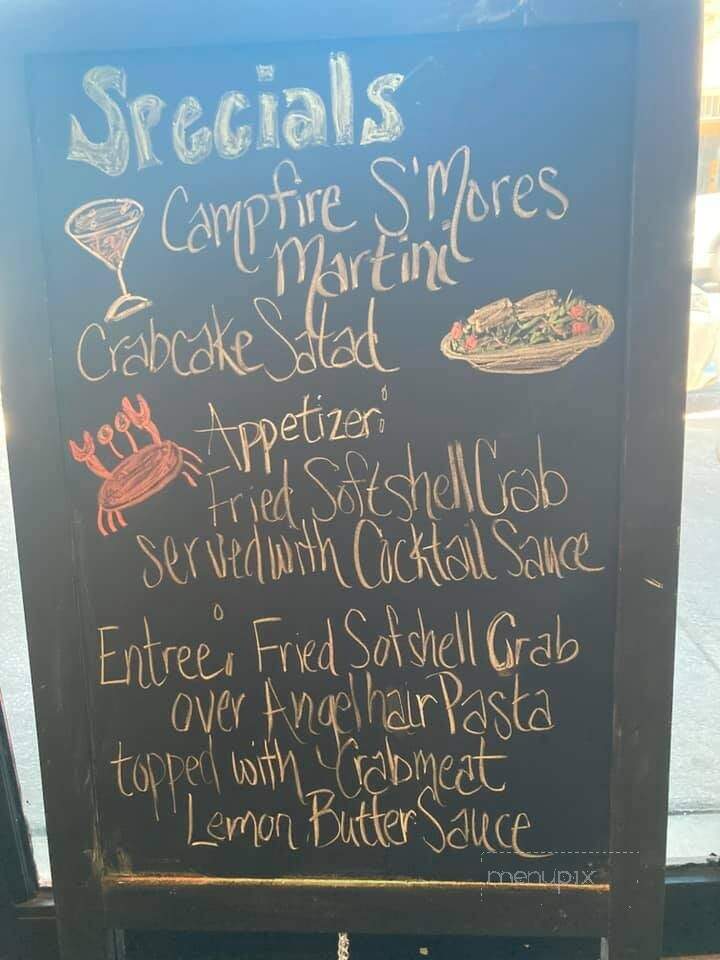 Specials
Campfire S'Mores
Martini
Crabcake Salad
Appetizer:
Fried Softshell Crab
served with Cocktail Sauce
Entree: Fried Sofshell Crab
over Angelhair Pasta
topped with Crabmeat
Lemon Butter Sauce
menupix